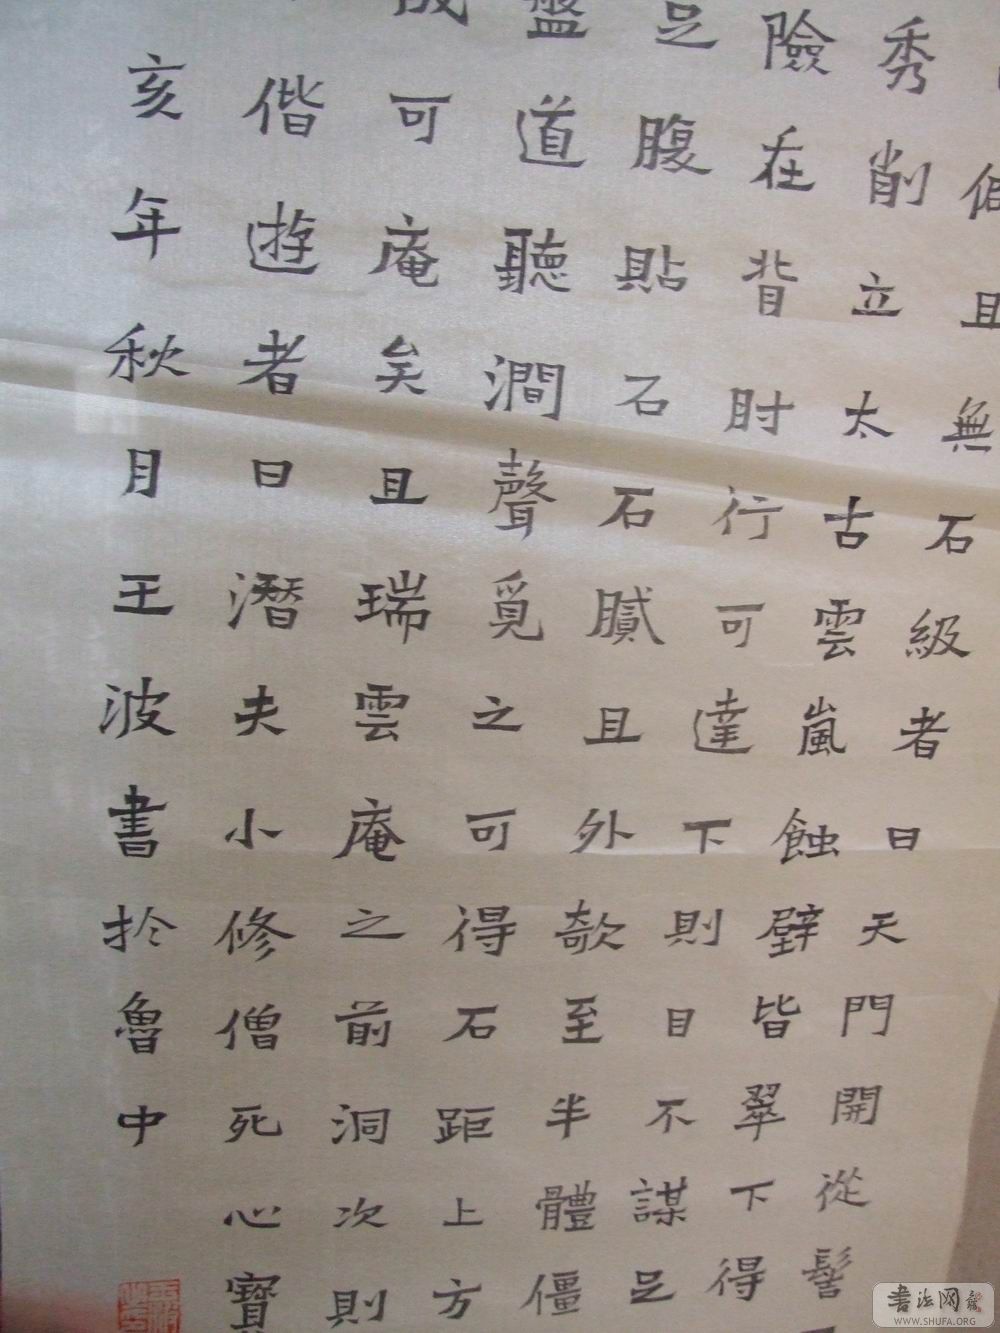 且無石級者日天門開從髻
秀削立太古雲嵐蝕壁皆翠下得
險在背肘行可達下則目不謀足
足腹貼石石膩且外欹至半體僵
盤道聽澗聲覓之可得石距上方
可庵矣且瑞雲庵之前洞次則
偕遊者曰潛夫小修僧死心寶
亥年秋月王波書於魯中
書法网
WWW.SHUFA.ORG